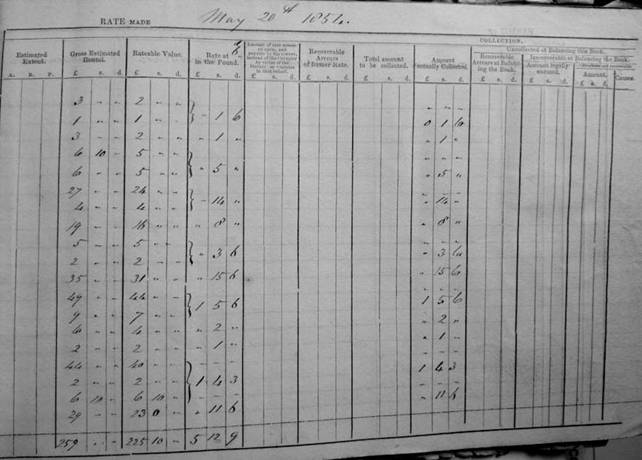 RATE MADE May 20th 1854.
COLLECTION.
Estimated Extent. Gross Estimated Rental. Rateable Value. Rate at in the Pound. Recoverable Arrears of former Rate. Total amount to be collected. Amount actually Collected. Uncollected at Balancing this Book.
Recoverable Arrears at Balancing the Book. Irrecoverable at Balancing the Book.
Amount legally excused. Amount. Causes.
A. R. P. £ s. d. £ s. d. £ s. d. £ s. d. £ s. d. £ s. d. £ s. d. £ s. d. £ s. d. £ s. d.
3 " " 2 " "
1 " " 1 " " } " 1 6 0 1 6
3 " " 2 " " " 1 " " 1 "
6 10 " 5 " "
6 " " 5 " " } " 5 " " 5 "
27 " " 24 " "
4 " " 4 " " } " 14 " " 14 "
19 " " 16 " " " 8 " " 8 "
5 " " 5 " "
2 " " 2 " " } " 3 6 " 3 6
35 " " 31 " " " 15 6 " 15 6
49 " " 44 " "
9 " " 7 " " } 1 5 6 1 5 6
4 " " " 2 " " 2 "
2 " " 2 " " " 1 " " 1 "
44 " " 40 " "
2 " " 2 " " } 1 4 3 1 4 3
6 10 " 6 10 "
29 " " 23 0 " " 11 6 " 11 6
259 " " 225 10 " 5 12 9